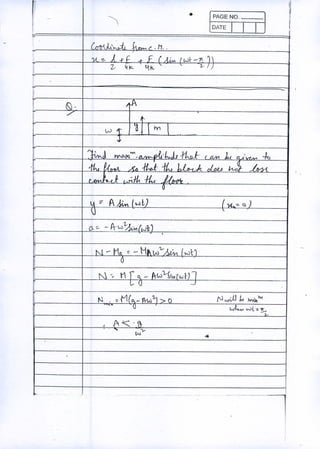 PAGE NO.
DATE
Coordinate from c.m.
x = l/2 + F/4K + F/4K (sin (ωt - π/2))
Q:-
A
ω y m
Find max^m amplitude that can be given to
the floor so that the block does not lose
contact with the floor.
y = A sin(ωt) (x₀ = 0)
a = -Aω² sin(ωt)
N - Mg = -MAω² sin(ωt)
N = M[g - Aω² sin(ωt)]
N_min = M(g - Aω²) > 0
N will be min^m
when ωt = π/2
A < g/ω²